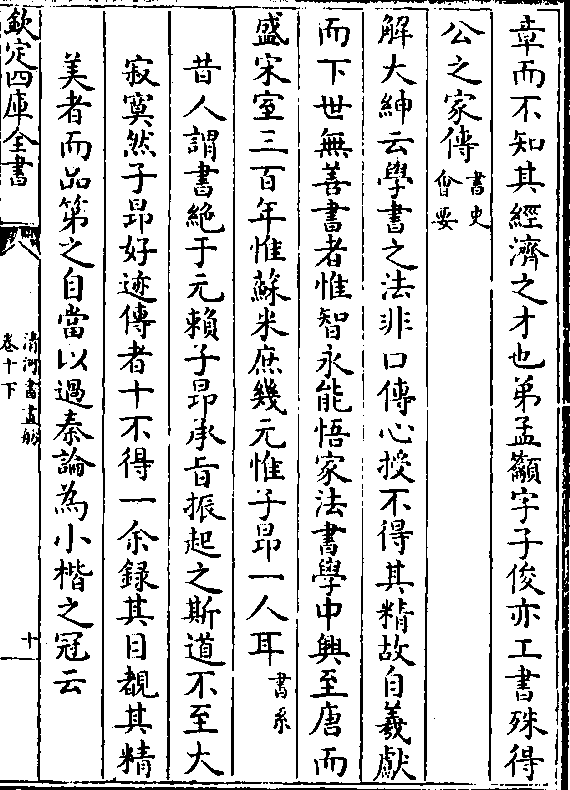 章而不知其經濟之才也弟孟籲字子俊亦工書殊得
公之家傳書史會要
解大紳云學書之法非口傳心授不得其精故自羲獻
而下世無善書者惟智永能悟家法書學中興至唐而
盛宋室三百年惟蘇米庶幾元惟子昻一人耳書系
昔人謂書絶于元賴子昻承㫖振起之斯道不至大
寂寞然子昻好迹傳者十不得一余録其目覩其精
美者而品第之自當以過秦論為小楷之冠云
欽定四庫全書
清河書畫舫
卷十下
十